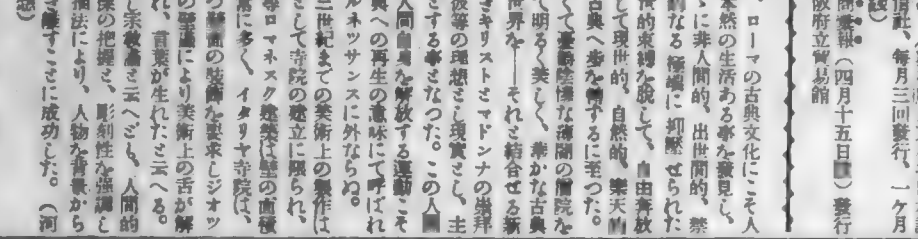 信社、毎月三回發行、一ケ月
設)
商業報(四月十五日)發行
阪府立貿易館
ローマの古典文化にこそ人
本然の生活ある事を發見し、
ゝに非人間的、出世間的、禁
的なる極端に抑壓せられた
世的束縛を脱して、自由奔放
して現世的、自然的、樂天的
古典へ歩を踏するに至つた。
くて憂鬱陰慘な薄闇の僧院を
て明るく美しく、華かな古典
世界を――それと結合せる新
きキリストとマドンナの崇拜
彼等の理想とし現實とし、主
とする事となつた。この人
人間自身を解放する運動こそ
典への再生の意味にて呼ばれ
ルネッサンスに外ならぬ。
三世紀までの美術上の製作は
として寺院の建立に限られ、
ロマネスク建築は壁の面積
常に多く、イタリヤ寺院は、
の壁面の裝飾を要求しジオッ
の壁畫により美術上の舌が解
れ、言葉が生れたと云へる。
し宗教論と云へども、人間的
深の把握と、彫刻性を強調し
描法により、人物を背景から
すことに成功した。(河
想)